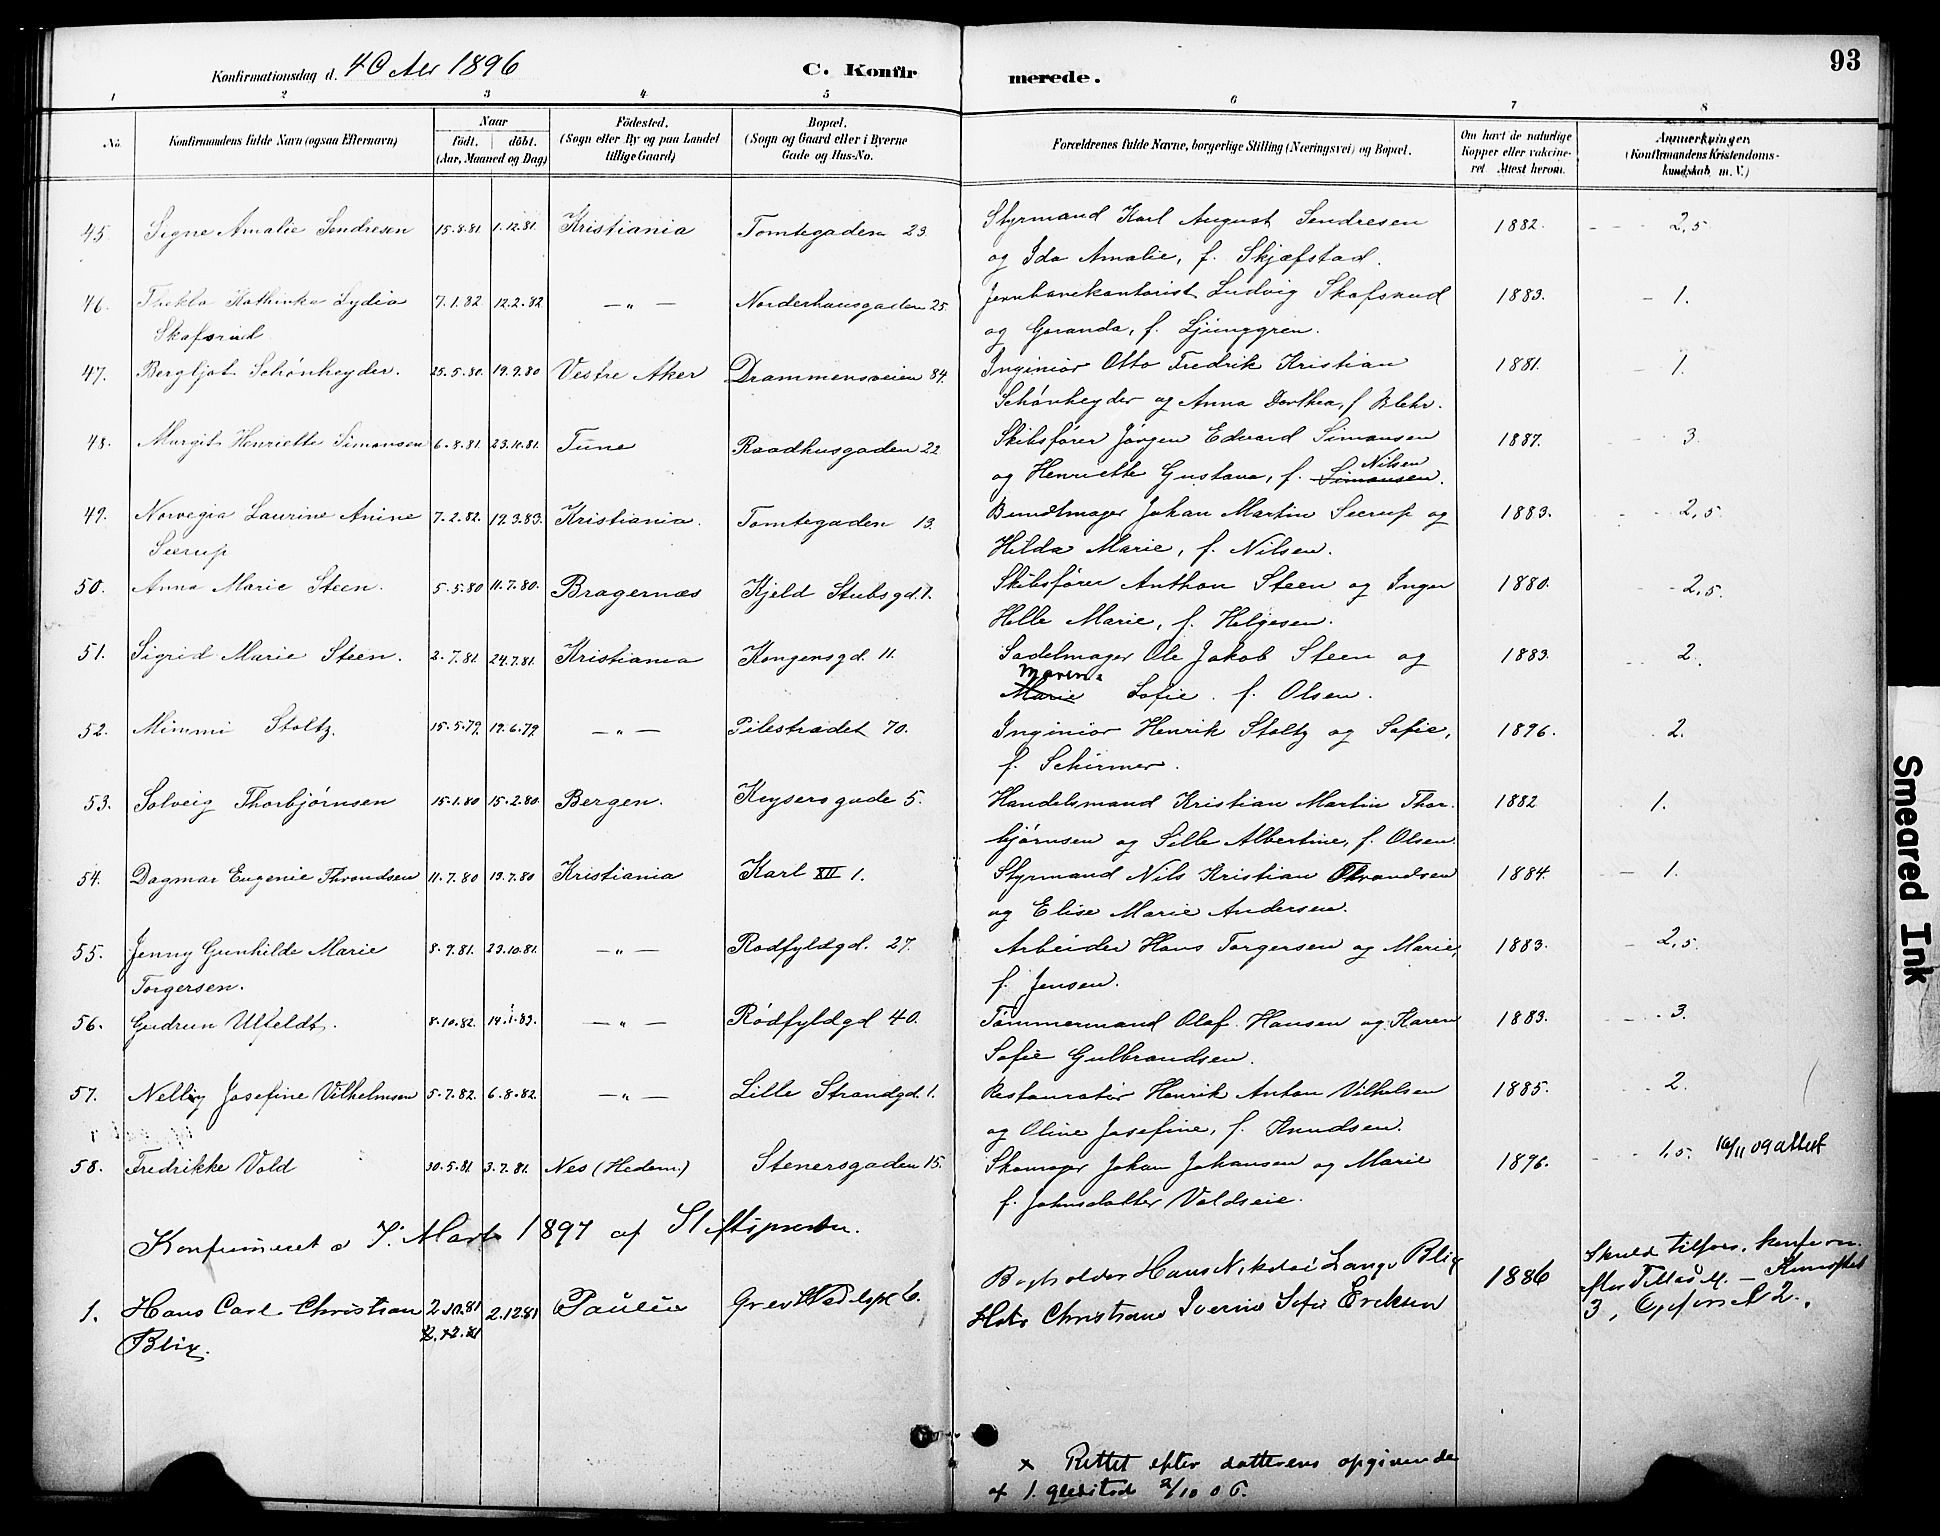 93
Konfirmationsdag d. 4 Octbr 1896 C. Konfirmerede.
1 2 3 4 5 6 7 8
No. Konfirmandens fulde Navn (ogsaa Efternavn) Naar født. døbt. (Aar, Maaned og Dag) Fødested. (Sogn eller By og paa Landet tillige Gaard) Bopæl. (Sogn og Gaard eller i Byerne Gade og Hus-No. Forældrenes fulde Navne, borgerlige Stilling (Næringsvei) og Bopæl. Om havt de naturlige Kopper eller vakcineret Attest herom. Anmerkninger. (Konfirmandens Kristendomskundskab m. V.)
45. Signe Amalie Sendresen 15.8.81 1.12.81. Kristiania Tomtegaden 23. Styrmand Karl August Sendresen 1882. 2,5
og Ida Amalie, f. Skjæfstad.
46. Thekla Kathinka Lydia 7.1.82 12.2.82 —„— Norderhausgaden 25. Jernbanekontorist Ludvig Skafsrud 1883. 1.
Skafsrud og Goranda, f. Ljunggren.
47. Bergljot Schønheyder. 25.5.80 19.9.80 Vestre Aker Drammensveien 84. Inginiør Otto Fredrik Kristian 1881. 1.
Schønheyder og Anna Dorthea, f Blehr.
48. Margit Henriette Simonsen 6.8.81 23.10.81. Tune Raadhusgaden 22 Skibsfører Jørgen Edvard Simonsen 1887. 3.
Nilsen
og Henriette Gustava, f. Simonsen.
49. Norvegia Laurine Anine 7.2.82. 19.3.83. Kristiania. Tomtegaden 13. Bundtmager Johan Martin Seerup og 1883. 2,5
Seerup Hilda Marie, f. Nilsen.
50. Anna Marie Steen. 5.5.80 11.7.80. Bragernæs Kjeld Stubsgd. 1. Skibsfører Anthon Steen og Inger 1880. 2,5.
Helle Marie, f. Helgesen.
51. Sigrid Marie Steen. 2.7.81. 24.7.81. Kristiania Kongensgd. 11. Sadelmager Ole Jakob Steen og 1883. 2.
Maren
Marie Sofie. f. Olsen.
52. Mimmi Stoltz. 15.5.79. 19.6.79. —„— Pilestrædet 70. Inginiør Henrik Stoltz og Sofie, 1896. 2.
f. Schirmer.
53. Solveig Thorbjørnsen 15.1.80 15.2.80. Bergen. Keysersgade 5. Handelsmand Kristian Martin Thor- 1882 1.
bjørnsen og Sille Albertine, f. Olsen.
54. Dagmar Eugenie Throndsen 11.7.80 19.7.80 Kristiania Karl XII 1. Styrmand Nils Kristian Throndsen 1884. 1.
og Elise Marie Andersen.
55. Jenny Gunhilde Marie 8.9.81. 23.10.81. —„— Rødfyldgd. 27. Arbeider Hans Torgersen og Marie, 1883. 2,5
Torgersen. f. Jensen.
56. Gudrun Ulfeldt. 8.10.82. 14.1.83. —„— Rødfyldgd 40. Tømmermand Olaf Hansen og Karen 1883. 3.
Sofie Gulbrandsen.
57. Nelly Josefine Vilhelmsen 5.7.82. 6.8.82. —„— Lille Strandgd. 1. Restauratør Henrik Anton Vilhelsen 1885. 2.
og Oline Josefine, f. Knudsen.
58. Fredrikke Vold 30.5.81. 3.7.81. Nes (Hedem.) Stenersgaden 15. Skomager Johan Johansen og Marie 1896. 1,5. 16/11 09 attest
f. Johnsdatter Voldseie.
Konfirmeret d 7. Marts 1897 af Stiftsprovsten.
1. Hans Carl Christian 2.10.81 2.12.81 Paulus Grev Wedelspl 6. Bogholder Hans Nikolai Lange Blix 1886 Skuld tilfors. konfirm.
Blix. 2.12.81 Christiane Iverine Sofie Eriksen efter Tillad.
3, Opførsel 2.
x Rettet efter datterens opgivende
2/10 06.
Smeared Ink